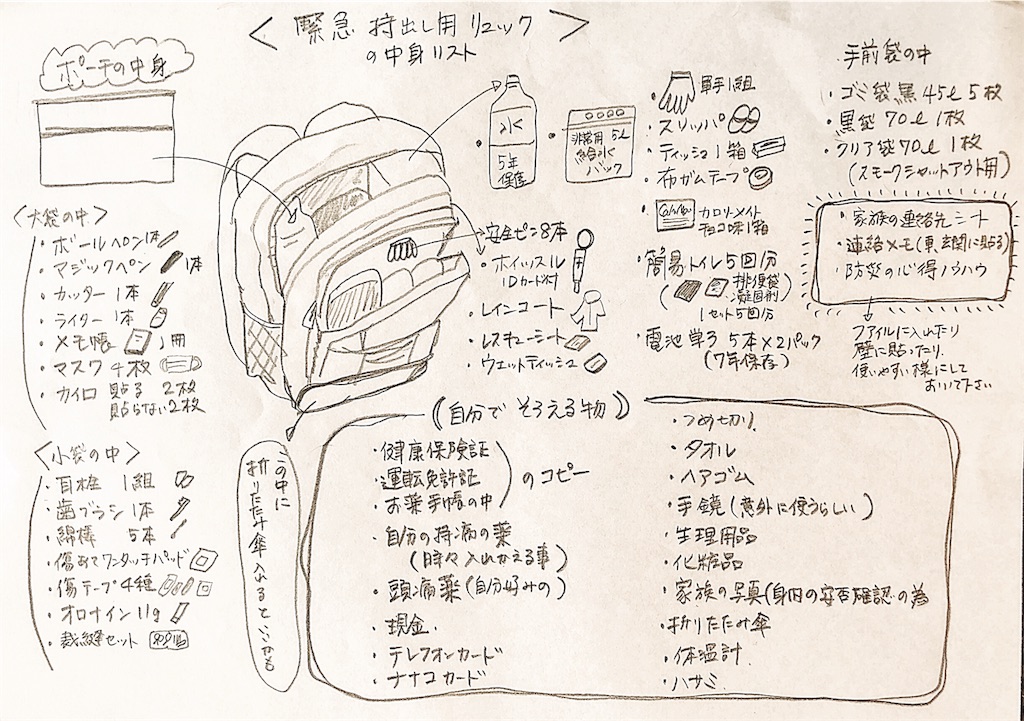 緊急持出し用リュック
の中身リスト
ポーチの中身
<大袋の中>
・ボールペン1本
・マジックペン 1本
・カッター 1本
・ライター 1本
・メモ帳 1冊
・マスク 4枚
・カイロ 貼る 2枚
貼らない2枚
<小袋の中>
・耳栓 1組
・歯ブラシ 1本
・綿棒 5本
・傷あてワンタッチパッド
・傷テープ4種
・オロナイン11g
・裁縫セット
水
5年
保存
・非常用 5ℓ
給水
バック
安全ピン8本
・ホイッスル
IDカード付
・レインコート
・レスキューシート
・ウェットティッシュ
・軍手1組
・スリッパ
・ティッシュ1箱
・布ガムテープ
・カロリーメイト
チョコ味1箱
・簡易トイレ5回分
(排便袋
凝固剤)
1セット5回分
・電池 単3 5本×2パック
(7年保存)
手前袋の中
・ゴミ袋黒45ℓ 5枚
・黒袋 70ℓ 1枚
・クリア袋70ℓ 1枚
(スモークシャットアウト用)
・家族の連絡先シート
・連絡メモ(車玄関に貼る)
・防災の心得ノウハウ
ファイルに入れたり
壁に貼ったり、
使いやすい様にして
おいて下さい
この中に
折りたたみ傘入れるといいかも
(自分でそろえる物)
・健康保険証
・運転免許証
・お薬手帳の中
のコピー
・自分の持病の薬
(時々入れかえる事)
・頭痛薬(自分好みの)
・現金
・テレフォンカード
・ナナコカード
・つめ切り
・タオル
・ヘアゴム
・手鏡(意外に使うらしい)
・生理用品
・化粧品
・家族の写真(身内の安否確認の為
・折りたたみ傘
・体温計
・ハサミ